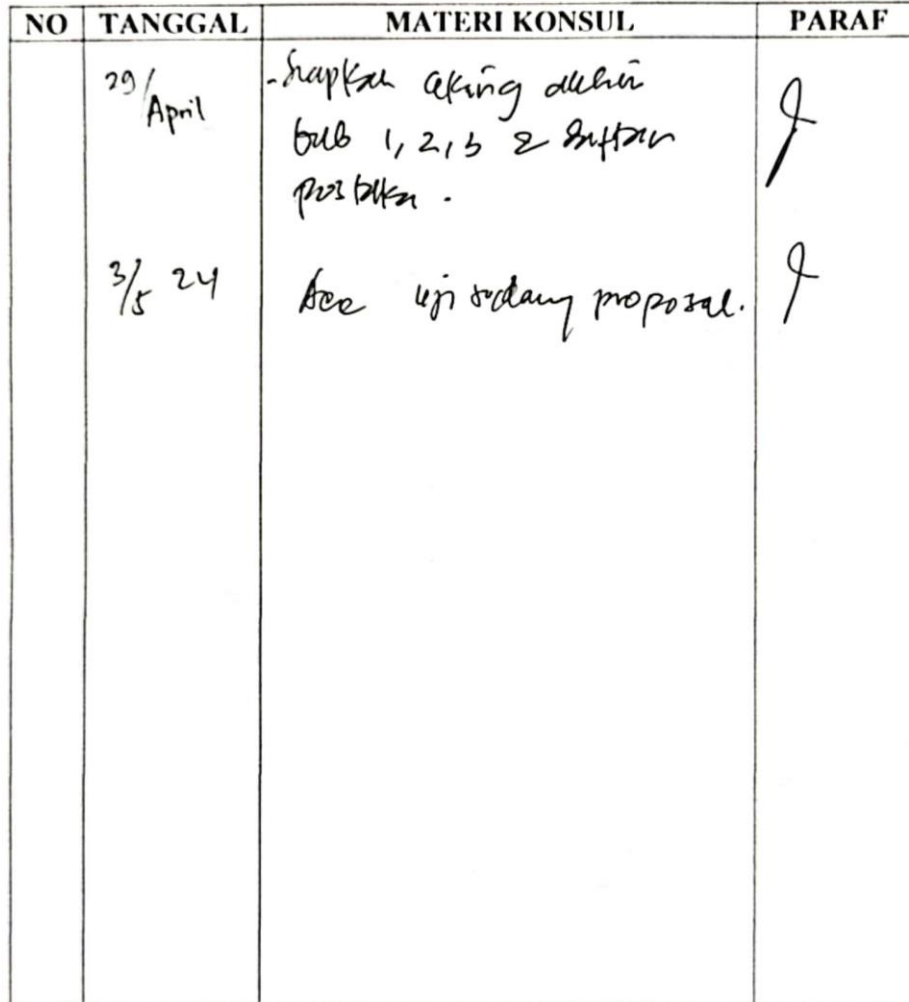 NO TANGGAL MATERI KONSUL PARAF
29/April - Siapkan ceking akhir
bab 1, 2, 3 & daftar
pustaka.
3/5 24 Acc uji sidang proposal.